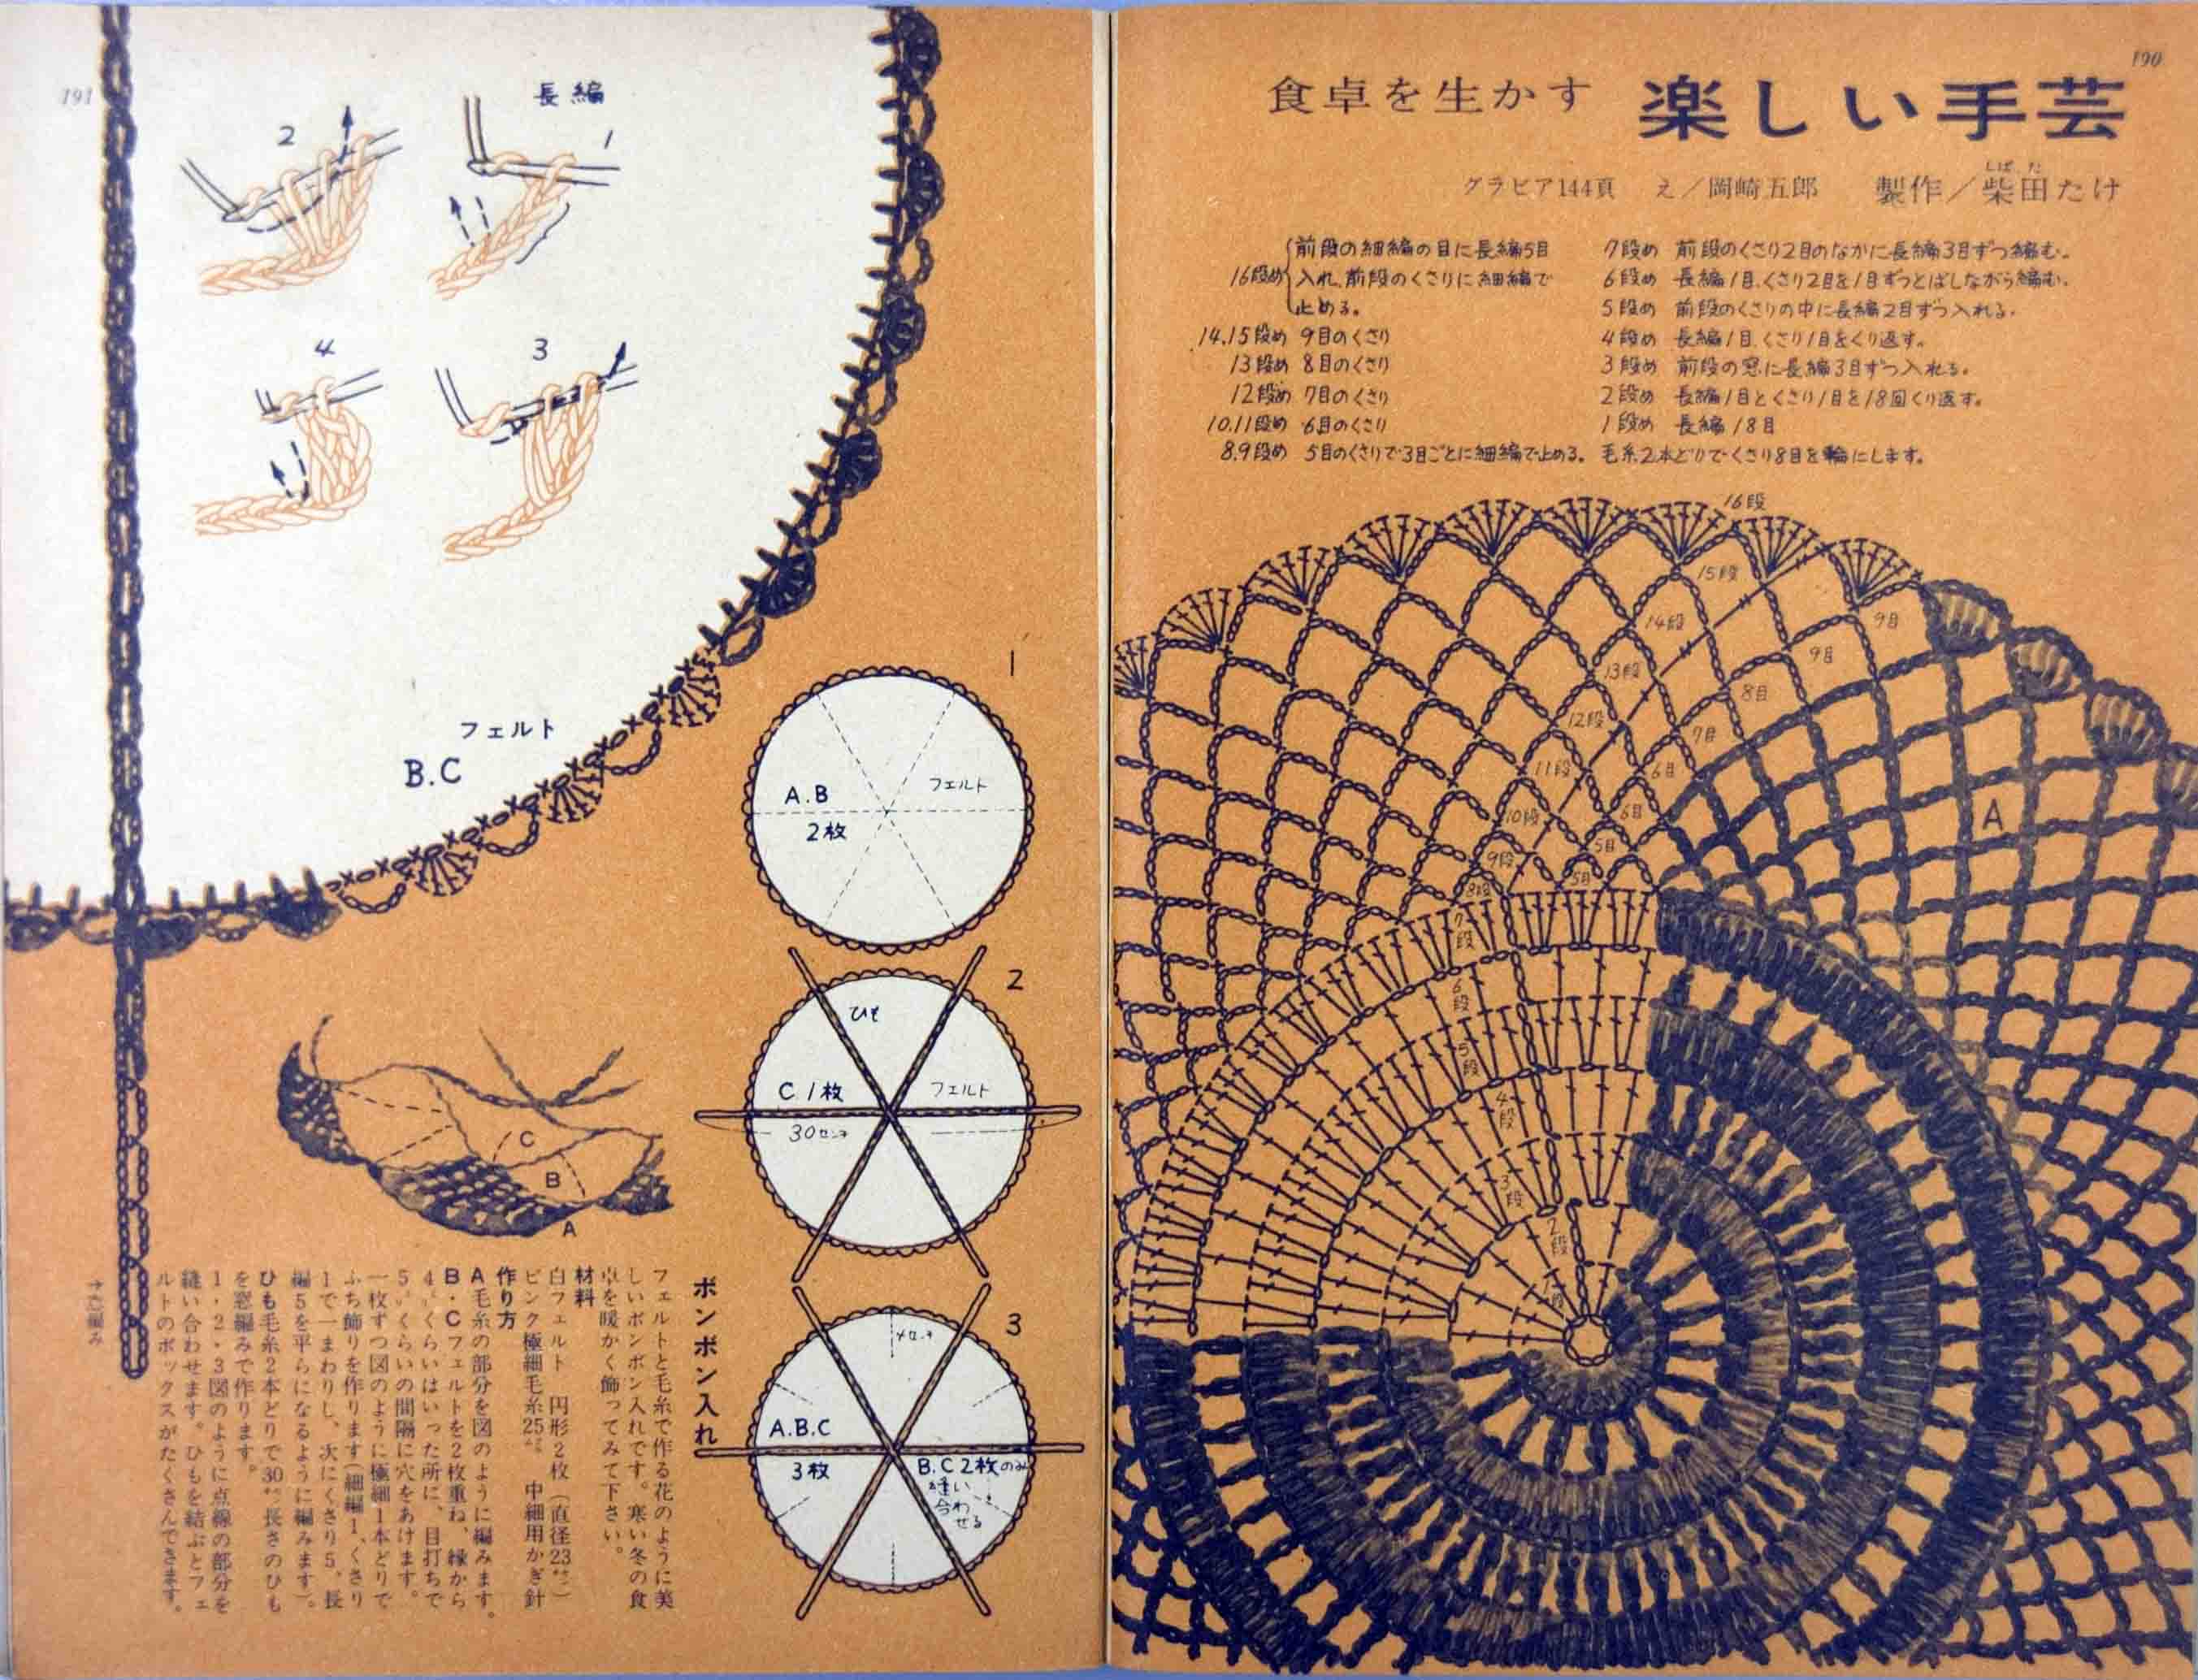 190
食卓を生かす 楽しい手芸
グラビア144頁 え／岡崎五郎 製作／柴田たけ
しばた
7段め 前段のくさり2目のなかに長編3目ずつ編む。
6段め 長編1目、くさり2目を1目ずつとばしながら編む。
5段め 前段のくさりの中に長編2目ずつ入れる。
4段め 長編1目、くさり1目をくり返す。
3段め 前段の窓に長編3目ずつ入れる。
2段め 長編1目とくさり1目を18回くり返す。
1段め 長編18目
毛糸2本どりでくさり8目を輪にします。
16段め 前段の細編の目に長編5目
入れ、前段のくさりに細編で
止める。
14.15段め 9目のくさり
13段め 8目のくさり
12段め 7目のくさり
10.11段め 6目のくさり
8.9段め 5目のくさりで3目ごとに細編で止める。
16段
15段
14段
13段
12段
11段
10段
9段
8段
7段
6段
5段
4段
3段
2段
1段
9目
9目
8目
7目
6目
6目
5目
5目
A
191
長編
1
2
3
4
フェルト
B.C
1
A.B
フェルト
2枚
2
ひも
C 1枚
フェルト
30センチ
3
A.B.C
3枚
B.C 2枚のみ
縫い
合わ
せる
C
B
A
ボンボン入れ
フェルトと毛糸で作る花のように美
しいボンボン入れです。寒い冬の食
卓を暖かく飾ってみて下さい。
材料
白フェルト 円形2枚（直径23センチ）
ピンク極細毛糸25グラム 中細用かぎ針
作り方
A毛糸の部分を図のように編みます。
B・Cフェルトを2枚重ね、縁から
4ミリくらいはいった所に、目打ちで
5ミリくらいの間隔に穴をあけます。
一枚ずつ図のように極細1本どりで
ふち飾りを作ります（細編1、くさり
1で一まわりし、次にくさり5、長
編5を平らになるように編みます）。
ひも毛糸2本どりで30センチ長さのひも
を窓編みで作ります。
1・2・3図のように点線の部分を
縫い合わせます。ひもを結ぶとフェ
ルトのボックスがたくさんできます。